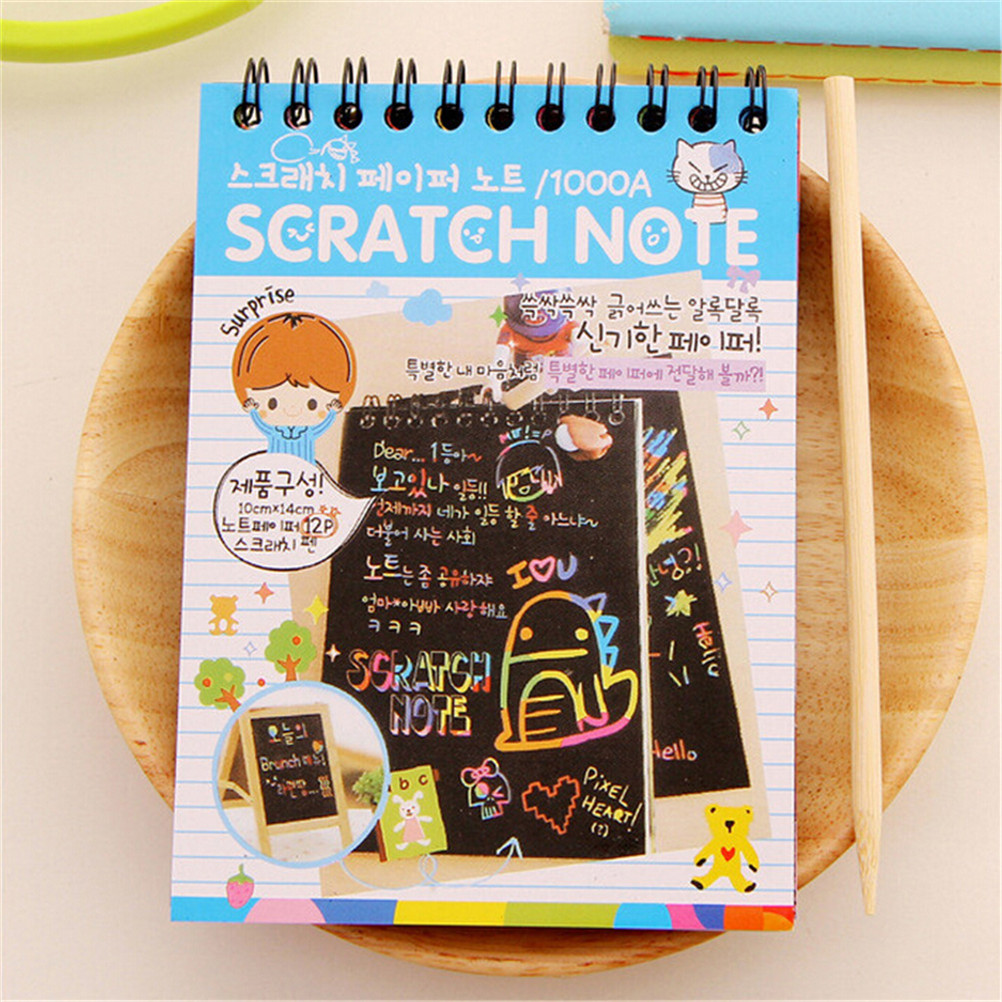 스크래치 페이퍼 노트 /1000A
SCRATCH NOTE
Surprise
쓱싹쓱싹 긁어쓰는 알록달록
신기한 페이퍼!
특별한 내 마음처럼! 특별한 페이퍼에 전달해 볼까?!
제품구성!
10cm×14cm
노트페이퍼 12P
스크래치 펜
Dear... 1등아~
보고있나 일등!!
언제까지 네가 일등 할 줄 아느냐~
더불어 사는 사회
노트는 좀 공유하쟈
엄마*아빠 사랑해요
ㅋㅋㅋ
I U
SCRATCH
NOTE
Hello
Hello
오늘의
Brunch 메뉴!
b c
PiXEL
HEART!
(?)